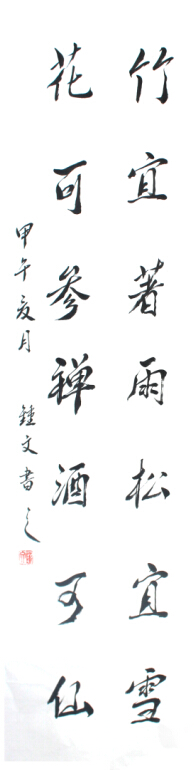 竹宜著雨松宜雪
花可參禪酒可仙
甲午夏月 鍾文書之